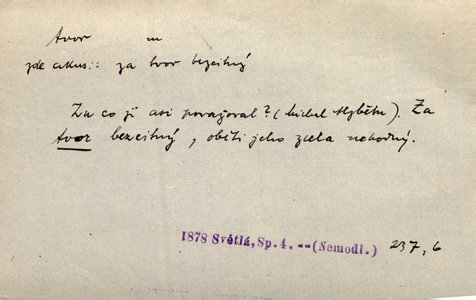 tvor m
zde akus.: za tvor bezcitný
Za co ji asi považoval? (Michal Alžbětu). Za
tvor bezcitný, oběti jeho zcela nehodný.
1878 Světlá, Sp. 4. -- (Nemodl.) 237, 6